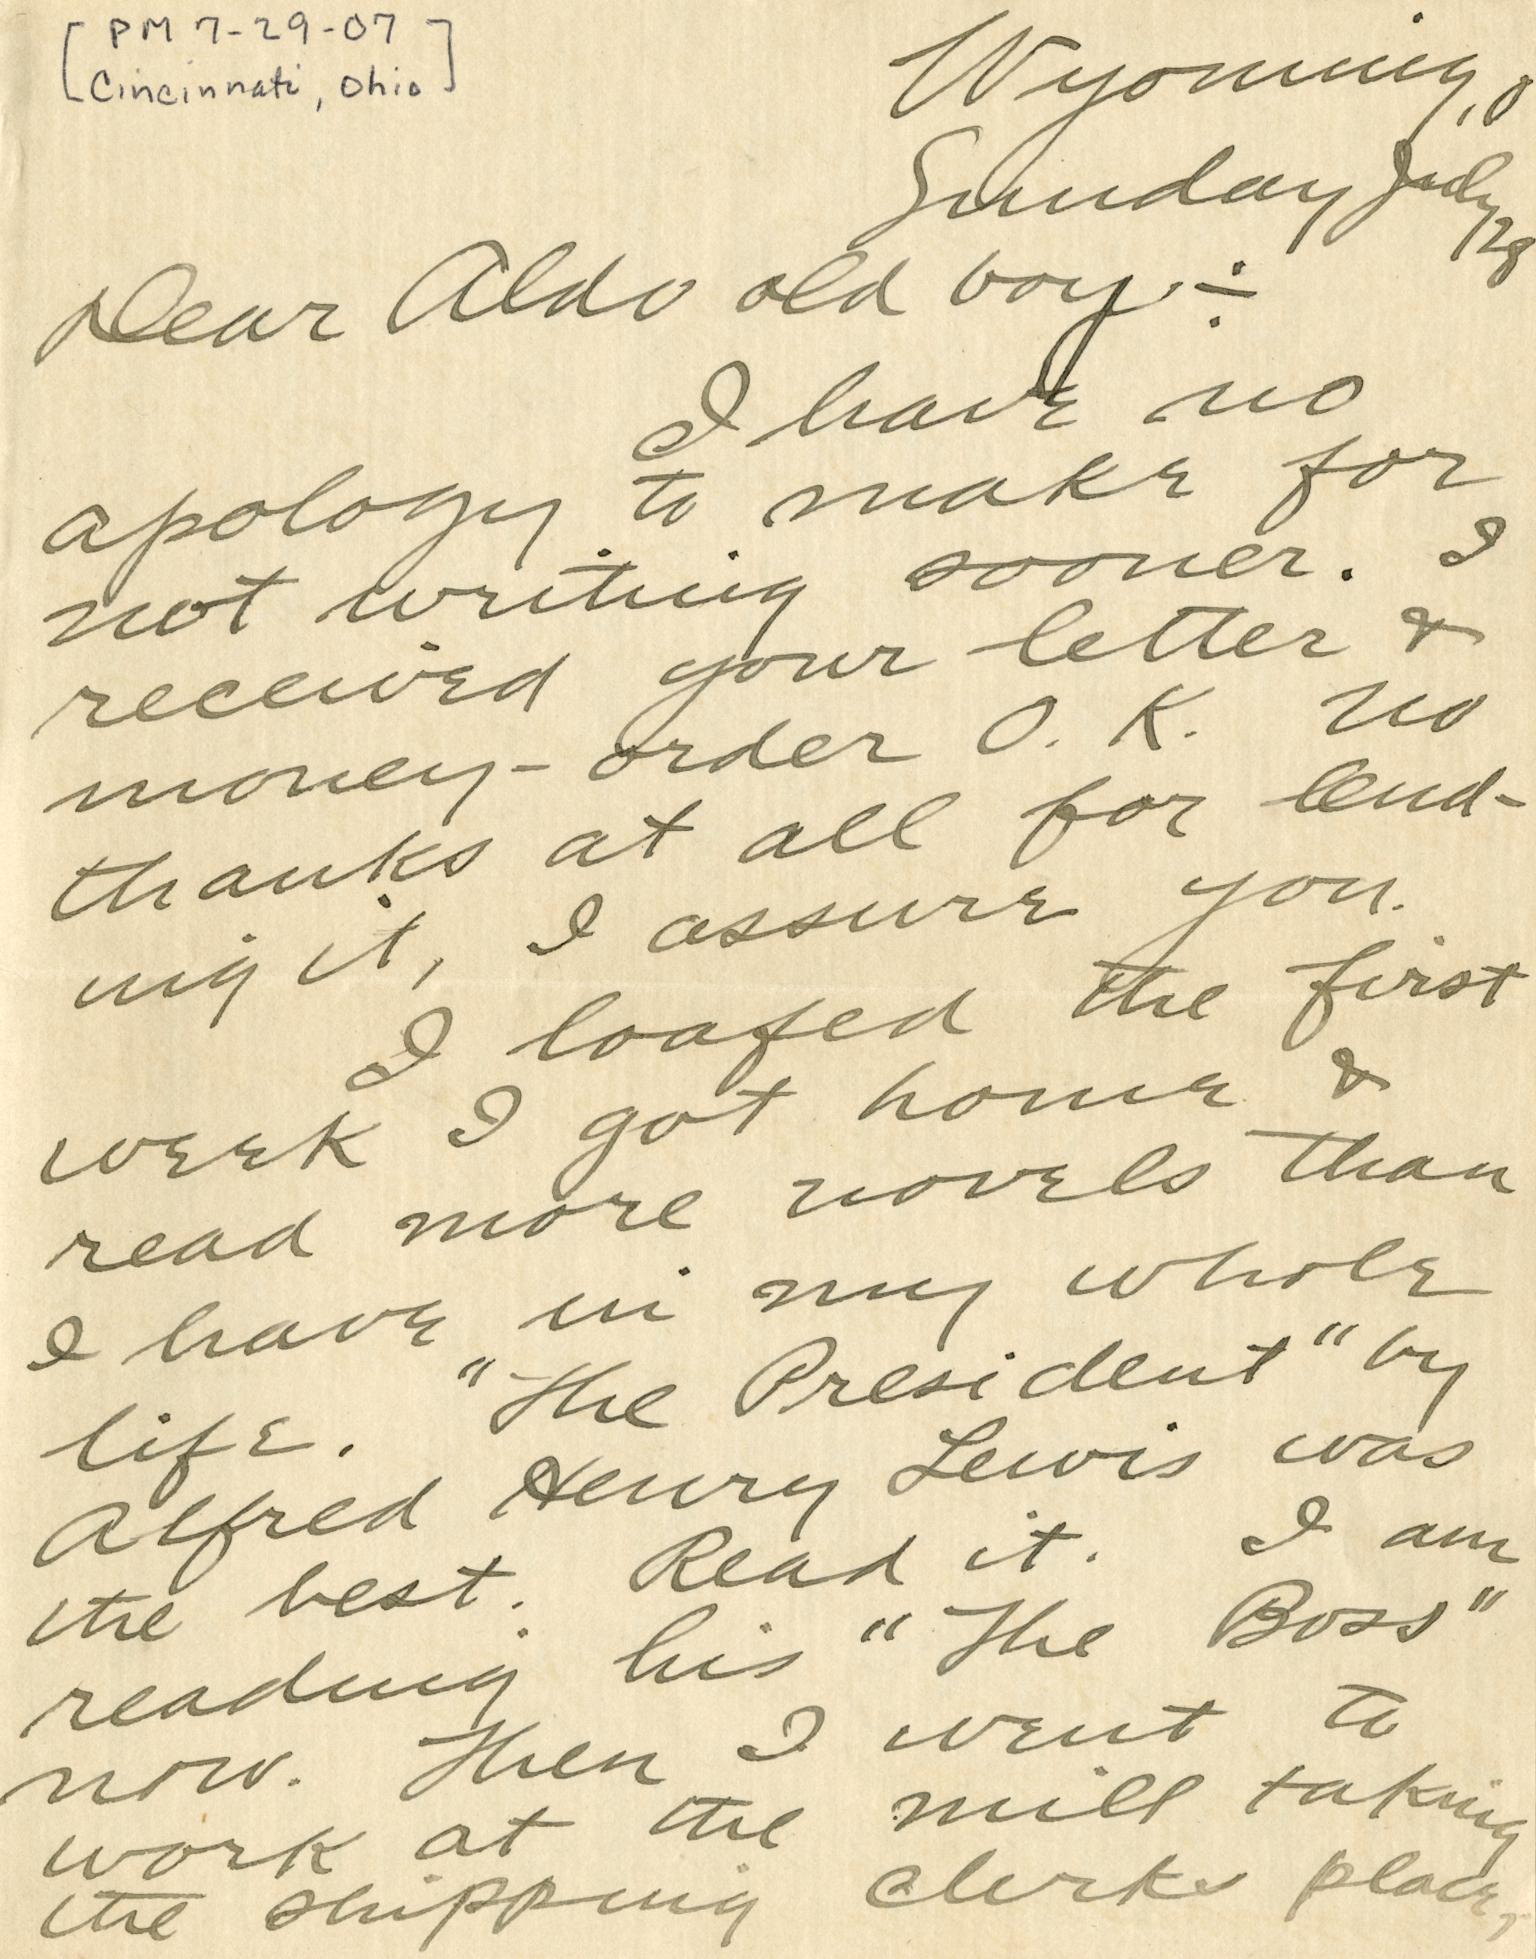 [PM 7-29-07
Cincinnati, Ohio]
Wyoming, O
Sunday July 28
Dear Aldo old boy:-
I have no
apology to make for
not writing sooner. I
received your letter &
money-order O.K. No
thanks at all for lend-
ing it, I assure you.
I loafed the first
week I got home &
read more novels than
I have in my whole
life. "The President" by
Alfred Henry Lewis was
the best. Read it. I am
reading his "The Boss"
now. Then I went to
work at the mill taking
the shipping clerks place,